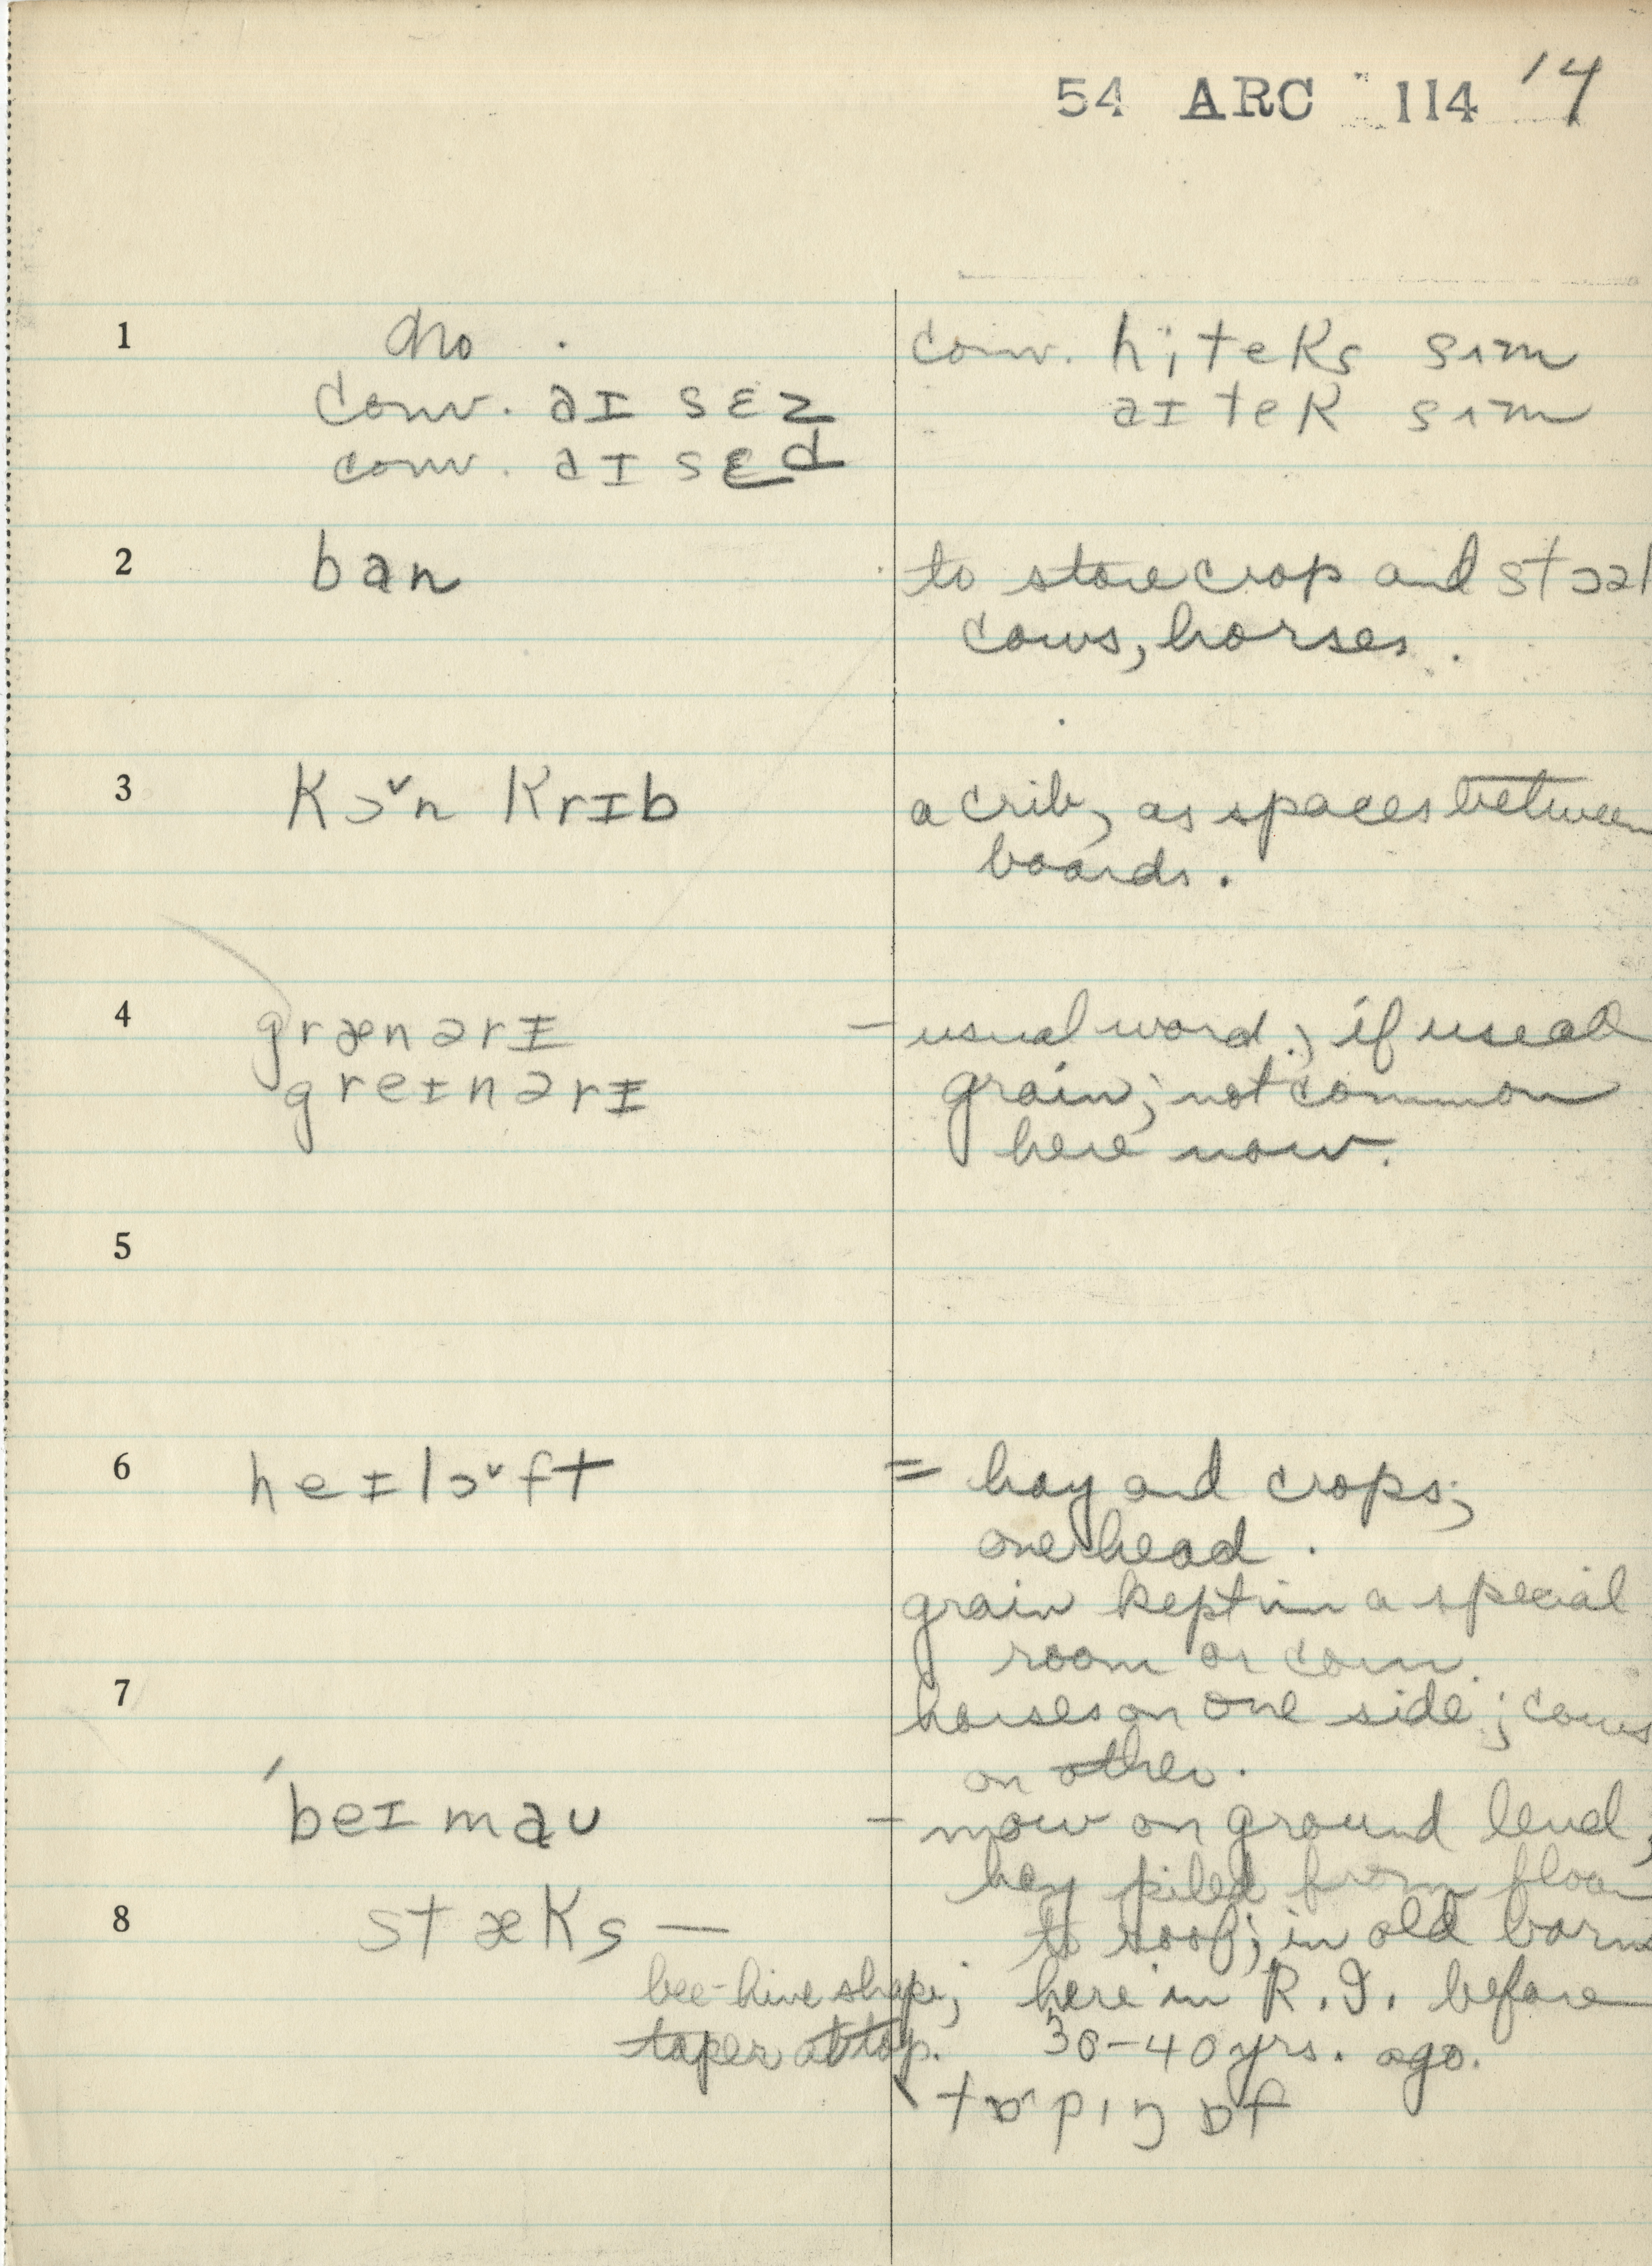 54 ARC 114 14
1 no. conv. hiteks sʌm
conv. aɪ sɛz aɪ tek sʌm
conv. aɪ sɛd
2 ban to store crop and stɔəl
cows, horses.
3 kɔ˅n krɪb a crib, as spaces between
boards.
4 grænərɪ – usual word, if used
greɪnərɪ grain; not common
here now.
5
6 heɪlɔ˅ft = hay and crops;
overhead.
grain kept in a special
room or corn.
7 horses on one side; cows
on other.
ˈbeɪmaʊ – mow on ground level,
hay piled from floor
8 stæks — to roof; in old barns
bee-hive shape; here in R.I. before
taper at top. 30-40 yrs. ago.